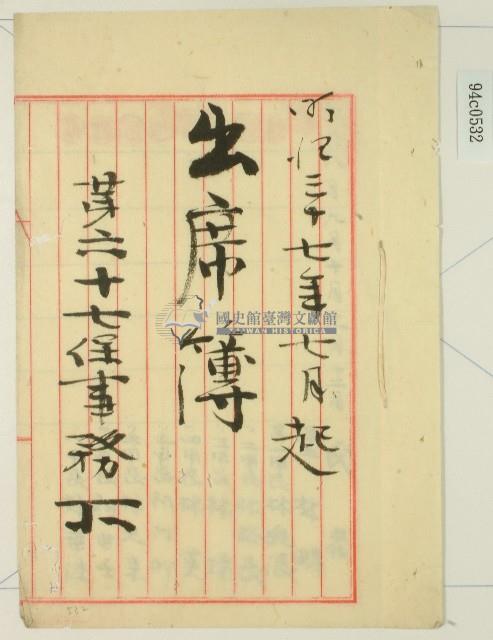 明治三十七年七月起
出席簿
第六十七保事務所
國史館臺灣文獻館
TAIWAN HISTORICA
94c0532
532